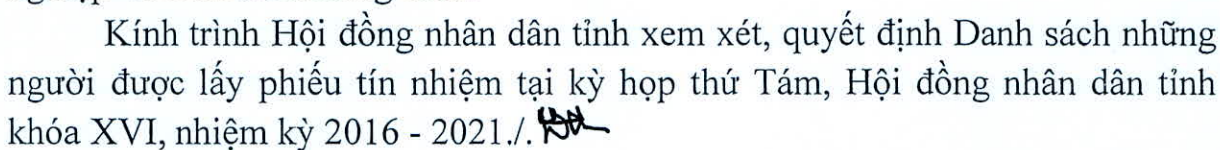 Kính trình Hội đồng nhân dân tỉnh xem xét, quyết định Danh sách những
người được lấy phiếu tín nhiệm tại kỳ họp thứ Tám, Hội đồng nhân dân tỉnh
khóa XVI, nhiệm kỳ 2016 - 2021./.